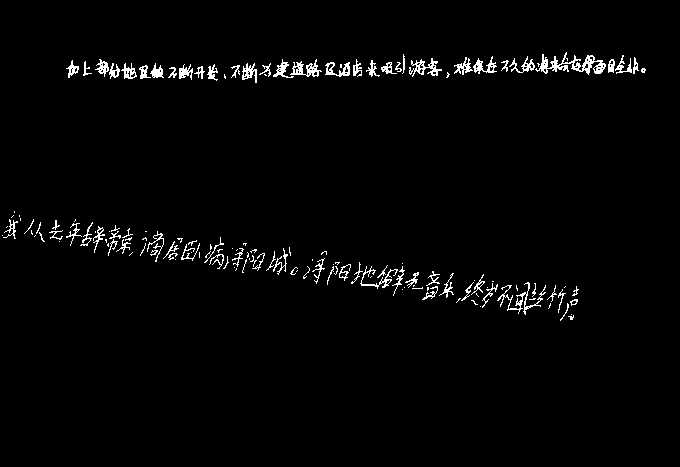 加上部分地区被不断开发、不断兴建道路及酒店来吸引游客,难保在不久的将来会变得面目全非。
我从去年辞帝京,谪居卧病浔阳城。浔阳地僻无音乐,终岁不闻丝竹声